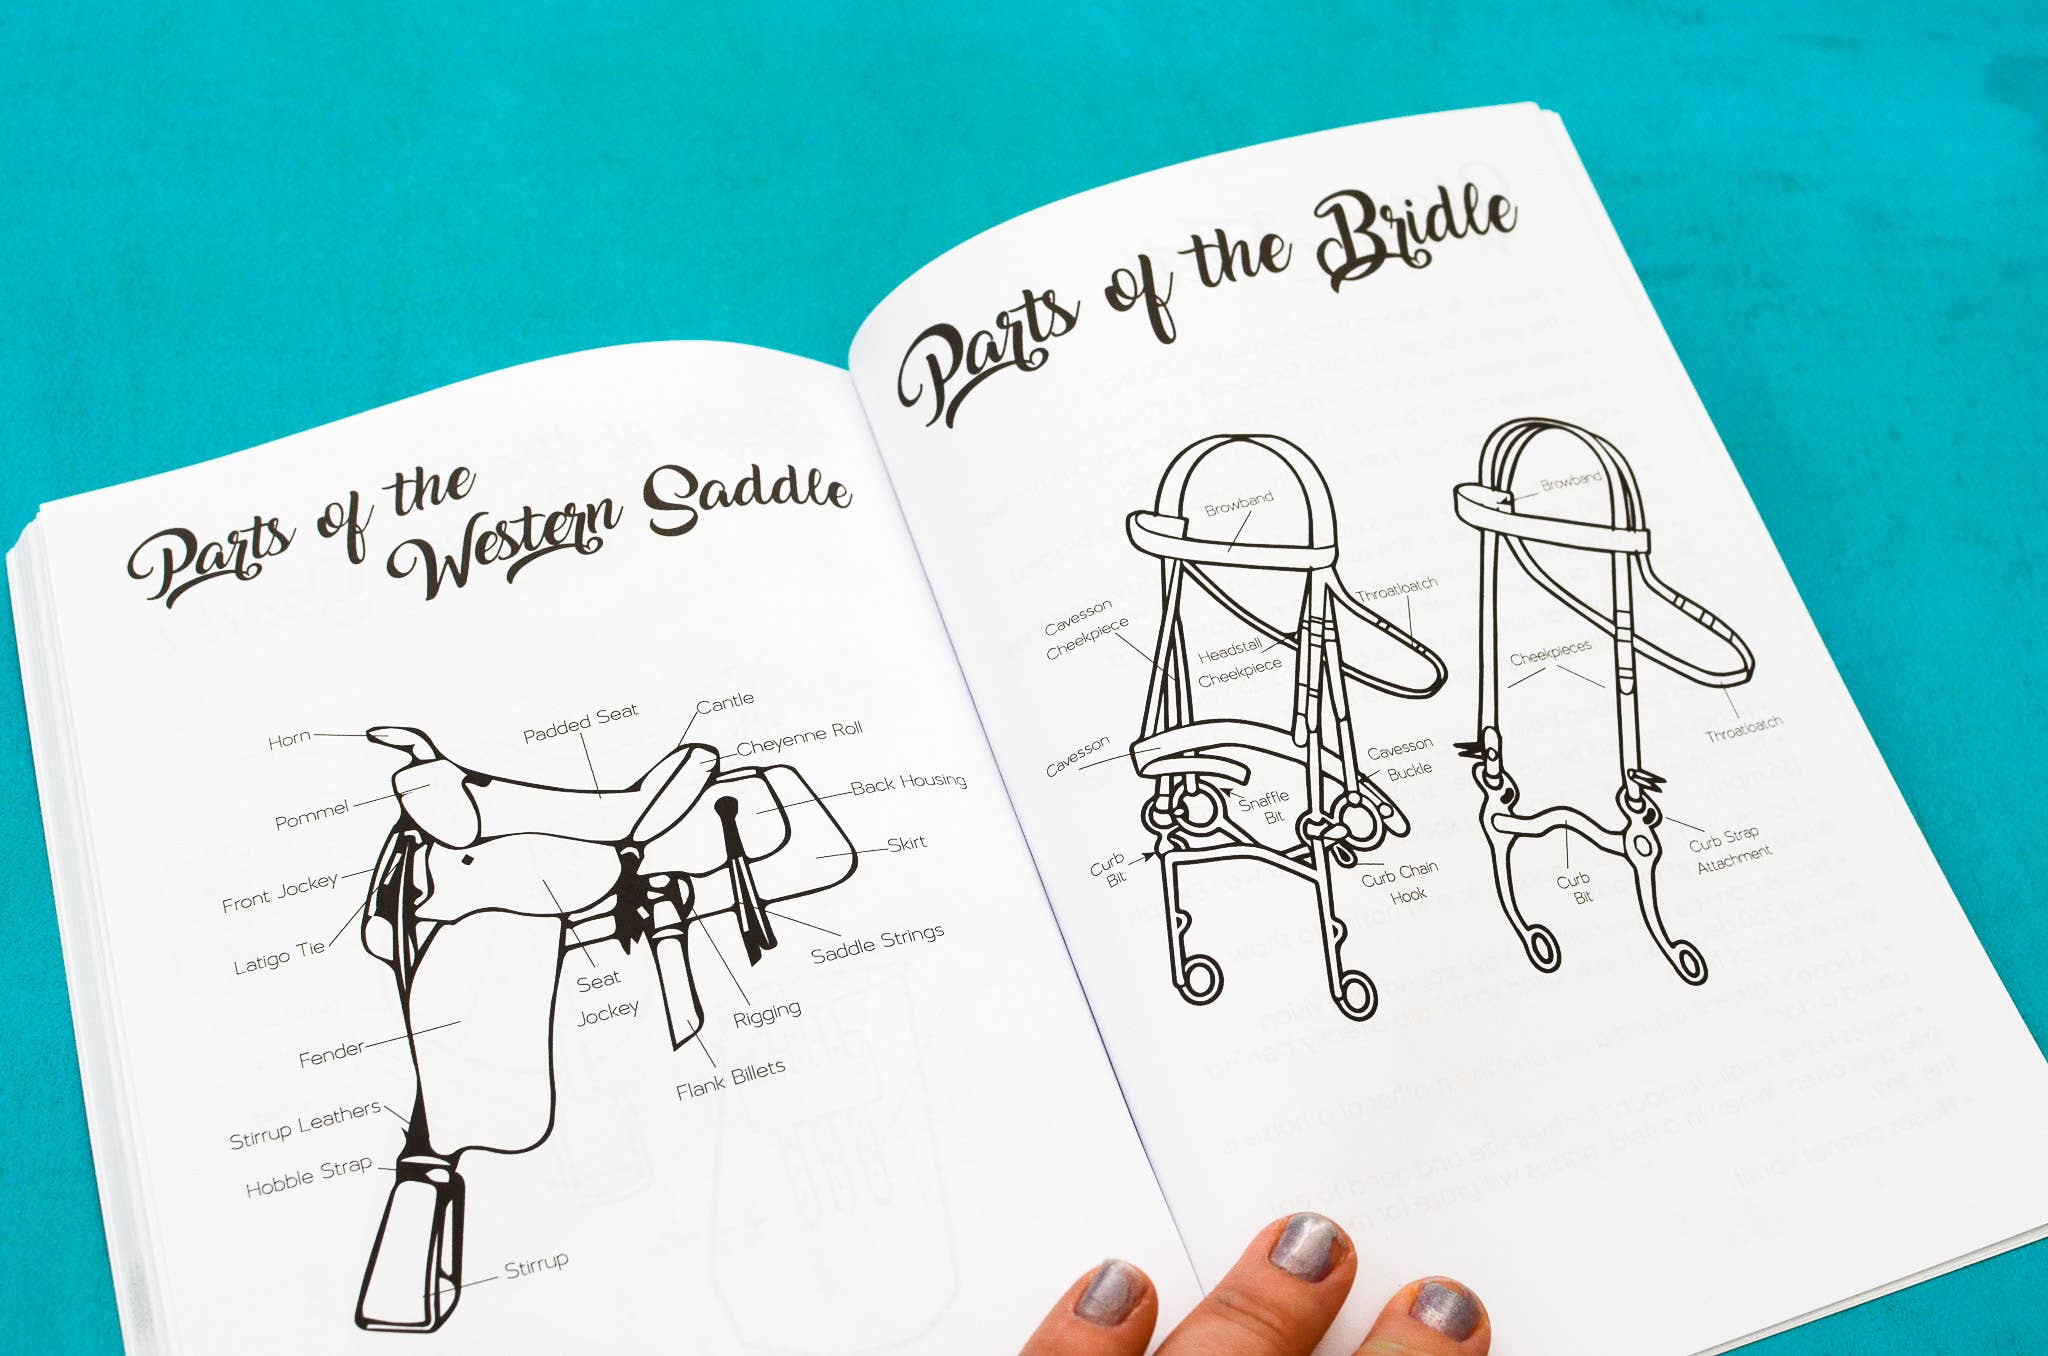 Parts of the
Western Saddle
Horn
Padded Seat
Cantle
Cheyenne Roll
Pommel
Back Housing
Skirt
Front Jockey
Latigo Tie
Saddle Strings
Seat
Jockey
Rigging
Fender
Flank Billets
Stirrup Leathers
Hobble Strap
Stirrup
Parts of the Bridle
Browband
Cavesson
Cheekpiece
Throatloatch
Headstall
Cheekpiece
Cavesson
Cavesson
Buckle
Snaffle
Bit
Curb
Bit
Curb Chain
Hook
Browband
Cheekpieces
Throatloatch
Curb Strap
Attachment
Curb
Bit